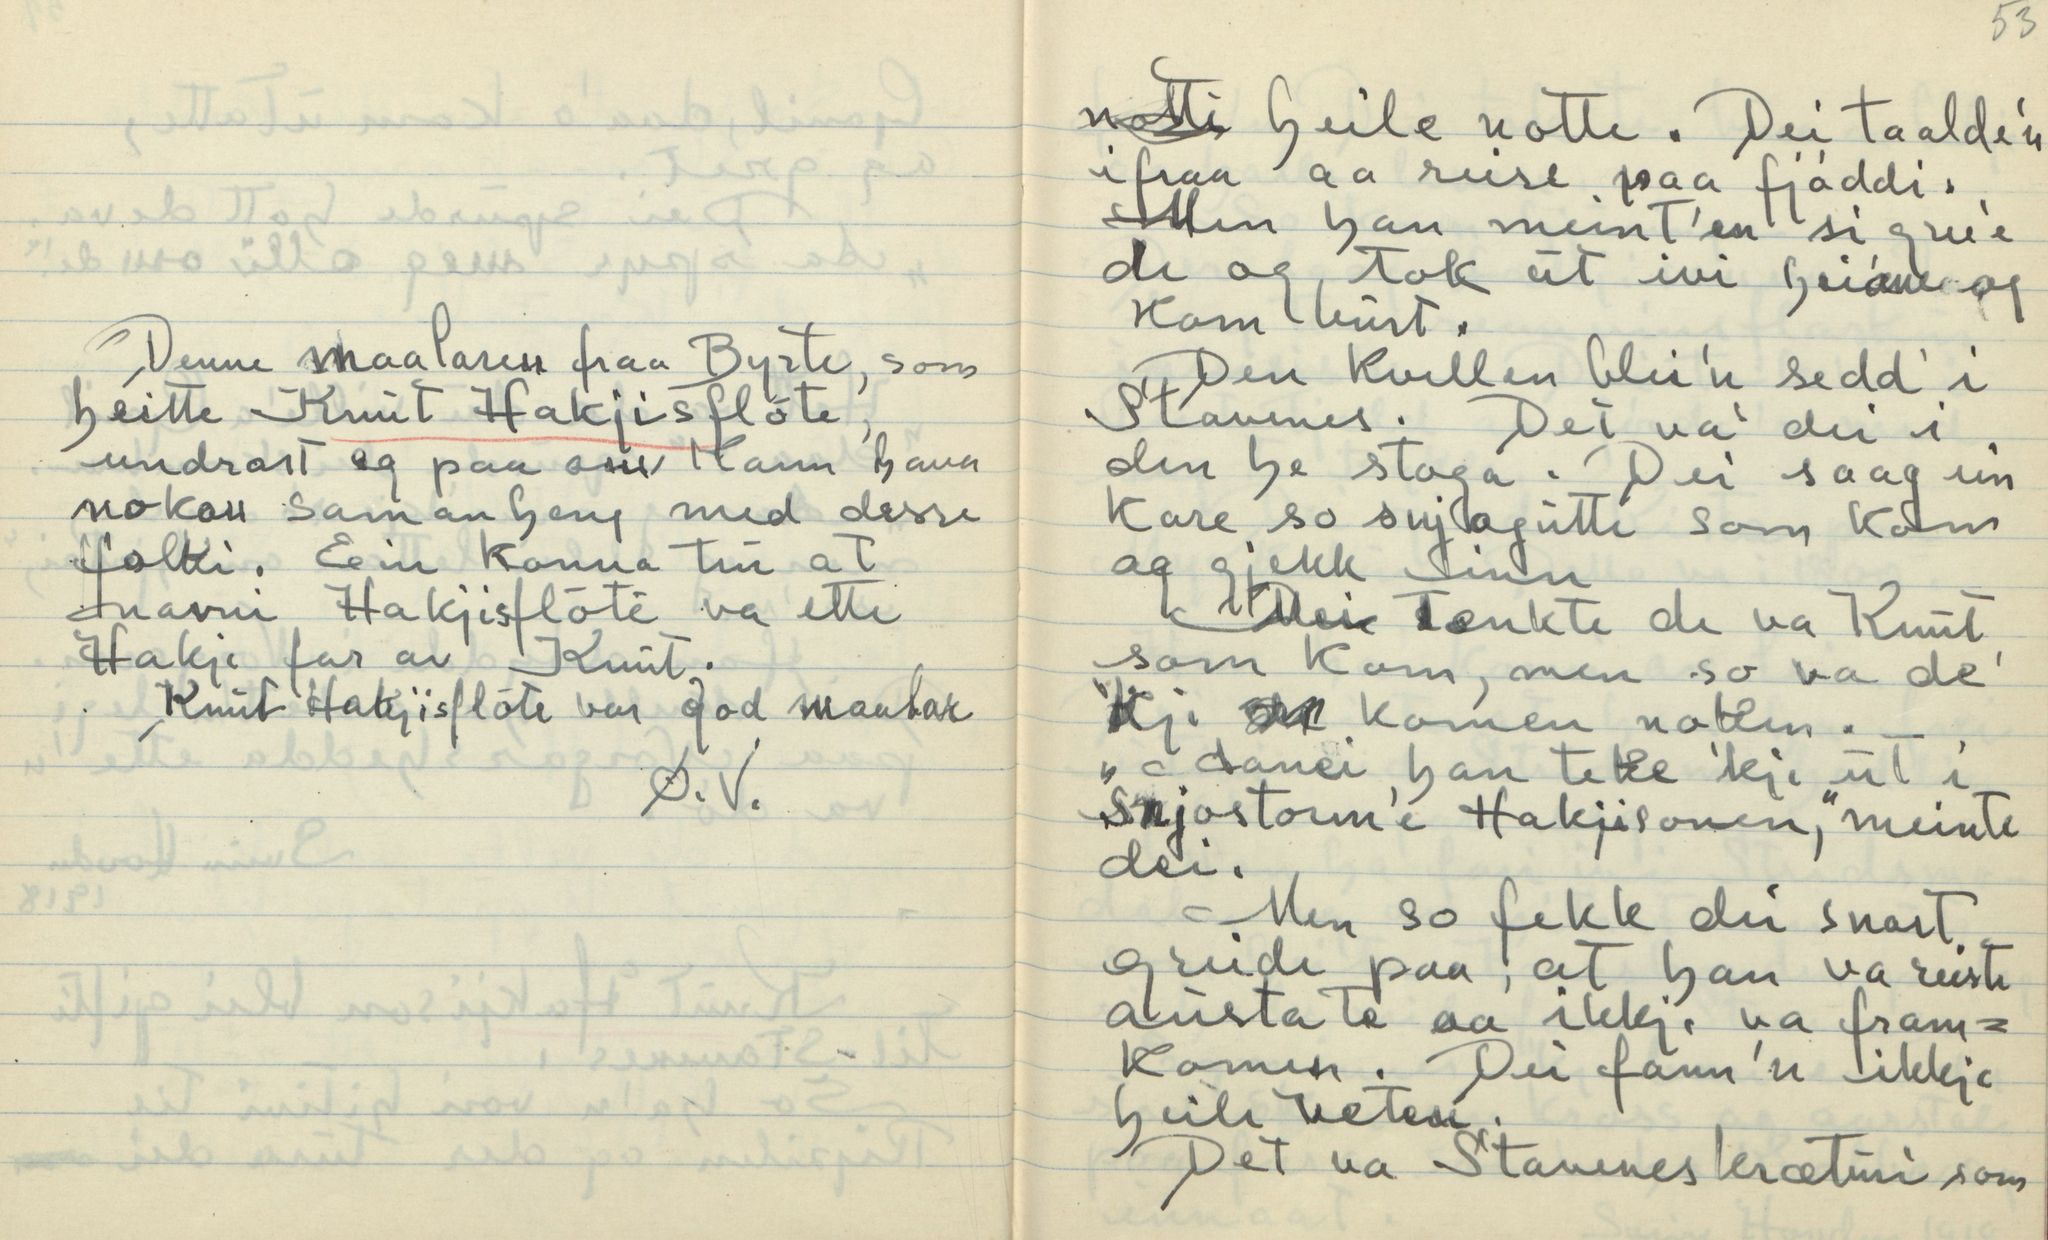 Denne maalaren fraa Byrte, som
heitte Knut Hakjisflóte,
undrast eg paa om kann hava
nokon samanheng med desse
folki. Ein kunna tru at
navni Hakjisflóte va ette
Hakje far av Knut.
Knut Hakjisflóte var god maalar
Ø.V.
53
notti heile notte. Dei taalde'n
ifraa aa reise paa fjøddi.
Men han meint'en si greie
de og tok ut ivi heiane og
kom burt.
Den kvellen blei'n sedd' i
Stavenes. Det va' dei i
den he stoga. Dei saag ein
kare so snjogutte som kom
og gjekk inn
Dei tenkte de va Knut
som kom, men so va de'
kje komen nokken.
"danei han teke 'kje ut i
snjostorm'e Hakjisonen," meinte
dei.
Men so fekk dei snart
greide paa, at han va reist
austate aa ikkje va fram=
komen. Dei fann'n ikkje
heile veten.
Det va Staveneskrætúri som